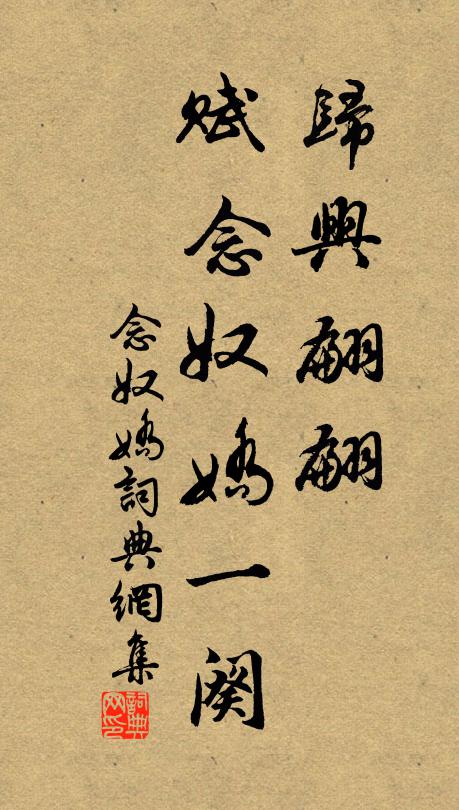 歸興翩翩
賦念奴嬌一闋
念奴嬌詞典網集
詞典网印